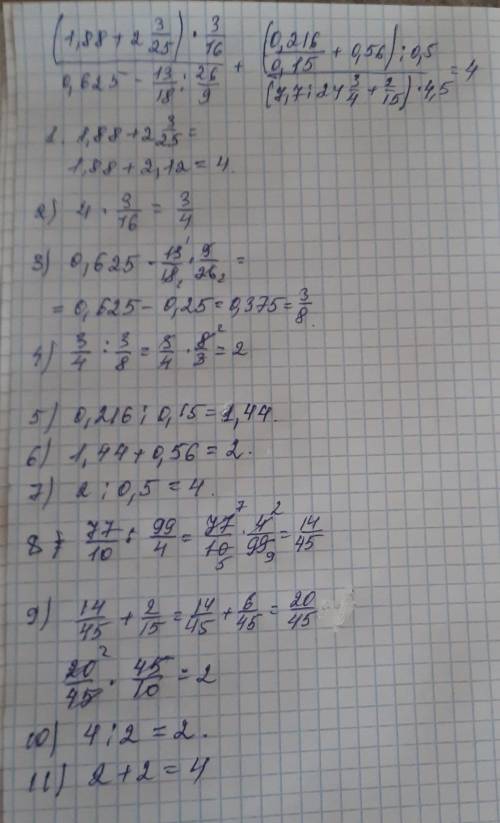 (1,88 + 2 3/25) · 3/16 / 0,625 - 13/18 : 26/9 + (0,216/0,15 + 0,56) : 0,5 / (7,7 : 24 3/4 + 2/15) · 4,5 = 4
1. 1,88 + 2 3/25 =
1,88 + 2,12 = 4.
2) 4 · 3/16 = 3/4
3) 0,625 - 13/18 · 9/26 =
= 0,625 - 0,25 = 0,375 = 3/8.
4) 3/4 : 3/8 = 3/4 · 8/3 = 2
5) 0,216 : 0,15 = 1,44.
6) 1,44 + 0,56 = 2.
7) 2 : 0,5 = 4.
8) 77/10 : 99/4 = 77/10 · 4/99 = 14/45
9) 14/45 + 2/15 = 14/45 + 6/45 = 20/45
20/45 · 45/10 = 2
10) 4 : 2 = 2.
11) 2 + 2 = 4